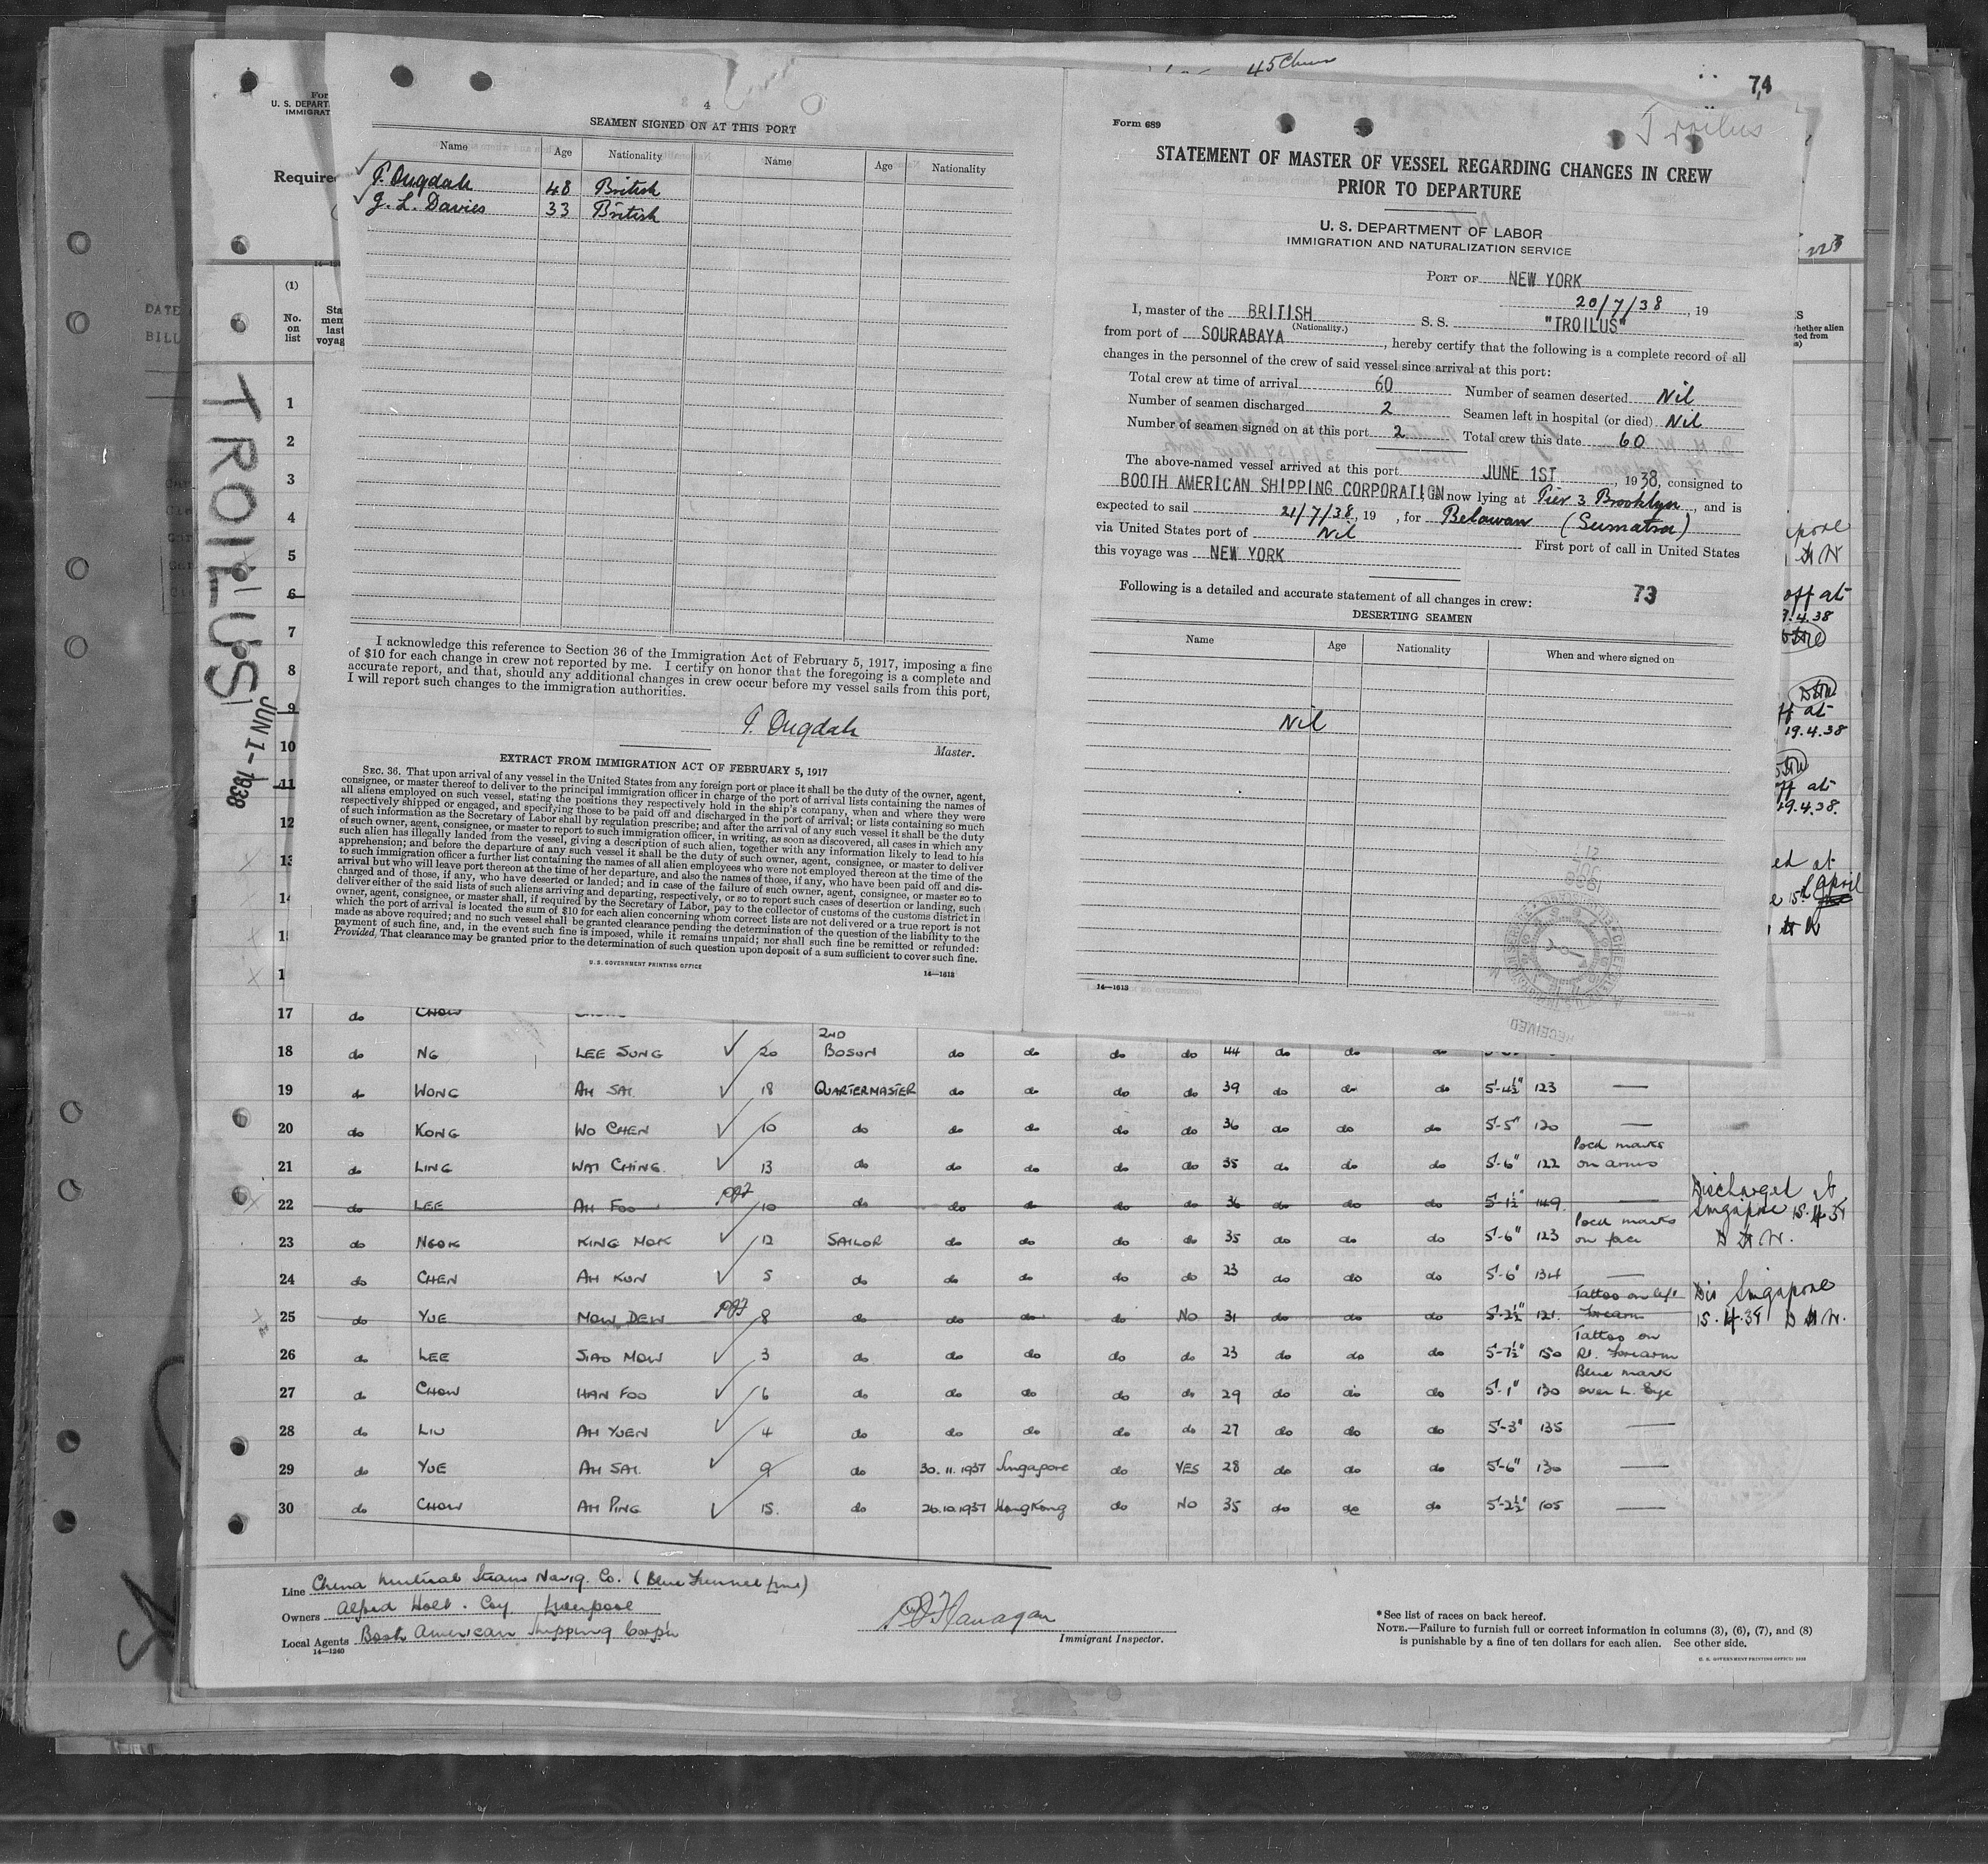 45 Chin
74
Troilus
4
SEAMEN SIGNED ON AT THIS PORT
Name Age Nationality Name Age Nationality
T. Dugdale 48 British
J. L. Davies 33 British
I acknowledge this reference to Section 36 of the Immigration Act of February 5, 1917, imposing a fine
of $10 for each change in crew not reported by me. I certify on honor that the foregoing is a complete and
accurate report, and that, should any additional changes in crew occur before my vessel sails from this port,
I will report such changes to the immigration authorities.
T. Dugdale
Master.
EXTRACT FROM IMMIGRATION ACT OF FEBRUARY 5, 1917
SEC. 36. That upon arrival of any vessel in the United States from any foreign port or place it shall be the duty of the owner, agent,
consignee, or master thereof to deliver to the principal immigration officer in charge of the port of arrival lists containing the names of
all aliens employed on such vessel, stating the positions they respectively hold in the ship's company, when and where they were
respectively shipped or engaged, and specifying those to be paid off and discharged in the port of arrival; or lists containing so much
of such information as the Secretary of Labor shall by regulation prescribe; and after the arrival of any such vessel it shall be the duty
of such owner, agent, consignee, or master to report to such immigration officer, in writing, as soon as discovered, all cases in which any
such alien has illegally landed from the vessel, giving a description of such alien, together with any information likely to lead to his
apprehension; and before the departure of any such vessel it shall be the duty of such owner, agent, consignee, or master to deliver
to such immigration officer a further list containing the names of all alien employees who were not employed thereon at the time of the
arrival but who will leave port thereon at the time of her departure, and also the names of those, if any, who have been paid off and dis-
charged and of those, if any, who have deserted or landed; and in case of the failure of such owner, agent, consignee, or master so to
deliver either of the said lists of such aliens arriving and departing, respectively, or so to report such cases of desertion or landing, such
owner, agent, consignee, or master, shall, if required by the Secretary of Labor, pay to the collector of customs of the customs district in
which the port of arrival is located the sum of $10 for each alien concerning whom correct lists are not delivered or a true report is not
made as above required; and no such vessel shall be granted clearance pending the determination of the question of the liability to the
payment of such fine, and, in the event such fine is imposed, while it remains unpaid; nor shall such fine be remitted or refunded:
Provided, That clearance may be granted prior to the determination of such question upon deposit of a sum sufficient to cover such fine.
U. S. GOVERNMENT PRINTING OFFICE 14—1613
Form 689
STATEMENT OF MASTER OF VESSEL REGARDING CHANGES IN CREW
PRIOR TO DEPARTURE
U. S. DEPARTMENT OF LABOR
IMMIGRATION AND NATURALIZATION SERVICE
PORT OF NEW YORK
20/7/38, 19
I, master of the BRITISH S. S. "TROILUS"
(Nationality.)
from port of SOURABAYA, hereby certify that the following is a complete record of all
changes in the personnel of the crew of said vessel since arrival at this port:
Total crew at time of arrival 60 Number of seamen deserted Nil
Number of seamen discharged 2 Seamen left in hospital (or died) Nil
Number of seamen signed on at this port 2 Total crew this date 60
The above-named vessel arrived at this port JUNE 1ST, 1938, consigned to
BOOTH AMERICAN SHIPPING CORPORATION now lying at Pier 3 Brooklyn, and is
expected to sail 21/7/38, 19 , for Belawan (Sumatra)
via United States port of Nil First port of call in United States
this voyage was NEW YORK
Following is a detailed and accurate statement of all changes in crew: 73
DESERTING SEAMEN
Name Age Nationality When and where signed on
Nil
14—1613
RECEIVED
For
U. S. DEPART
IMMIGRAT
Require
(1)
No. on list
Sta
men
last
voyag
TROILUS
JUN 1 - 1938
1
2
3
4
5
6
7
8
9
10
11
12
13
14
1
1
223
whether alien
off at
19.4.38
off at
19.4.38
off at
19.4.38.
17 do CHOW
18 do NG LEE SUNG 20 2ND BOSUN do do do do 44 do do do
19 do WONG AH SAI 18 QUARTERMASTER do do do do 39 do do do 5'-4½" 123 —
20 do KONG WO CHEN 10 do do do do do 36 do do do 5'-5" 120 —
21 do LING WAI CHING 13 do do do do do 35 do do do 5'-6" 122 Pock marks on arms
22 do LEE AH FOO 10 do do do do do 36 do do do 5'-1½" 149 — Discharged at Singapore 15.4.38
23 do NGOK KING MOK 12 SAILOR do do do do 35 do do do 5'-6" 123 Pock marks on face
24 do CHEN AH KUN 5 do do do do do 23 do do do 5'-6" 134 —
25 do YUE MOW DEW 8 do do do do NO 31 do do do 5'-2½" 121 Tattoo on left forearm Dis Singapore 15.4.38
26 do LEE SIAO MOW 3 do do do do do 23 do do do 5'-7½" 150 Tattoo on Rt. Forearm
27 do CHOW HAN FOO 6 do do do do do 29 do do do 5'-1" 130 Blue mark over L. Eye
28 do LIU AH YUEN 4 do do do do do 27 do do do 5'-3" 135 —
29 do YUE AH SAI 9 do 30.11.1937 Singapore do YES 28 do do do 5'-6" 130 —
30 do CHOW AH PING 15 do 26.10.1937 HongKong do NO 35 do do do 5'-2½" 105 —
Line China Mutual Steam Navig. Co. (Blue Funnel Line)
Owners Alfred Holt. Coy Liverpool
Local Agents Booth American Shipping Corp'n
14—1240
Flanagan
Immigrant Inspector.
*See list of races on back hereof.
NOTE.—Failure to furnish full or correct information in columns (3), (6), (7), and (8)
is punishable by a fine of ten dollars for each alien. See other side.
U. S. GOVERNMENT PRINTING OFFICE